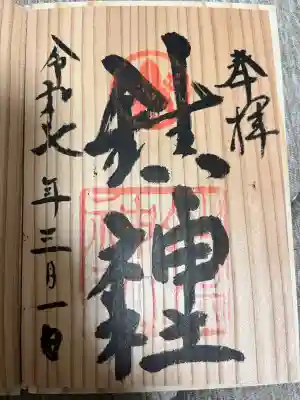 奉拝
神社
令和七年三月一日